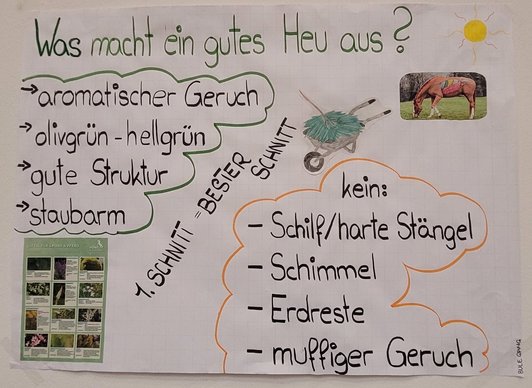 Was macht ein gutes Heu aus?
→ aromatischer Geruch
→ olivgrün - hellgrün
→ gute Struktur
→ staubarm
1. SCHNITT = BESTER SCHNITT
kein:
- Schilf/harte Stängel
- Schimmel
- Erdreste
- muffiger Geruch